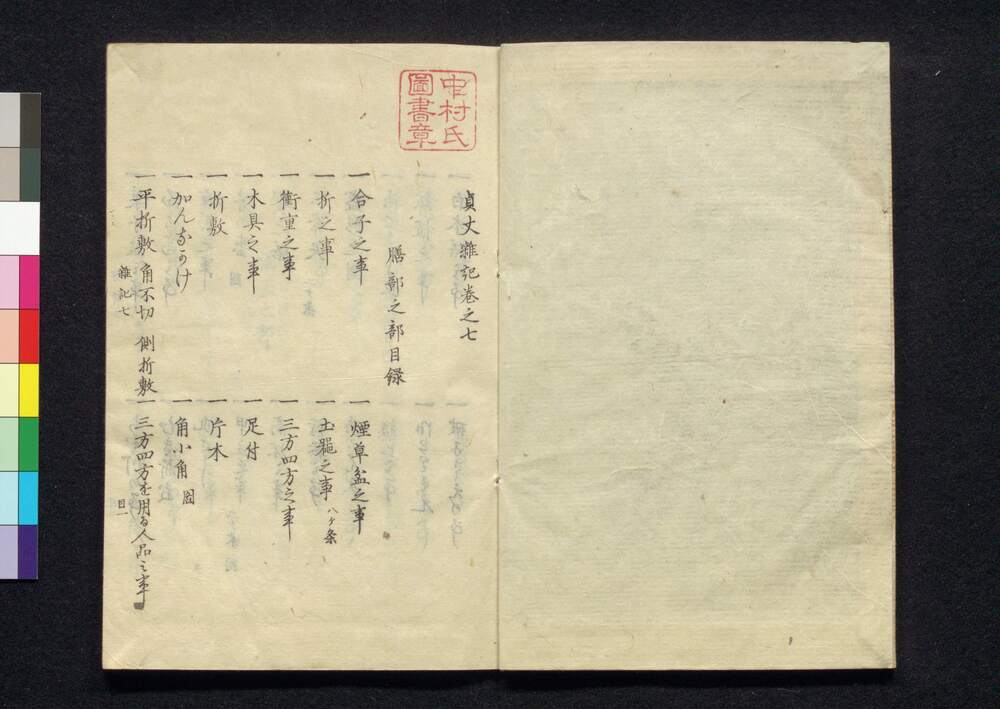 中村氏
圖書章
貞丈雜記卷之七
膳部之部目録
一合子之事
一煙草盆之事
一折之事
一土器之事 八ケ条
一衝重之事
一三方四方之事
一木具之事
一足付
一折敷
一片木
一かんなかけ
一角小角 圖
一平折敷 角不切 側折敷
一三方四方を用る人品之事
雜記七
目一